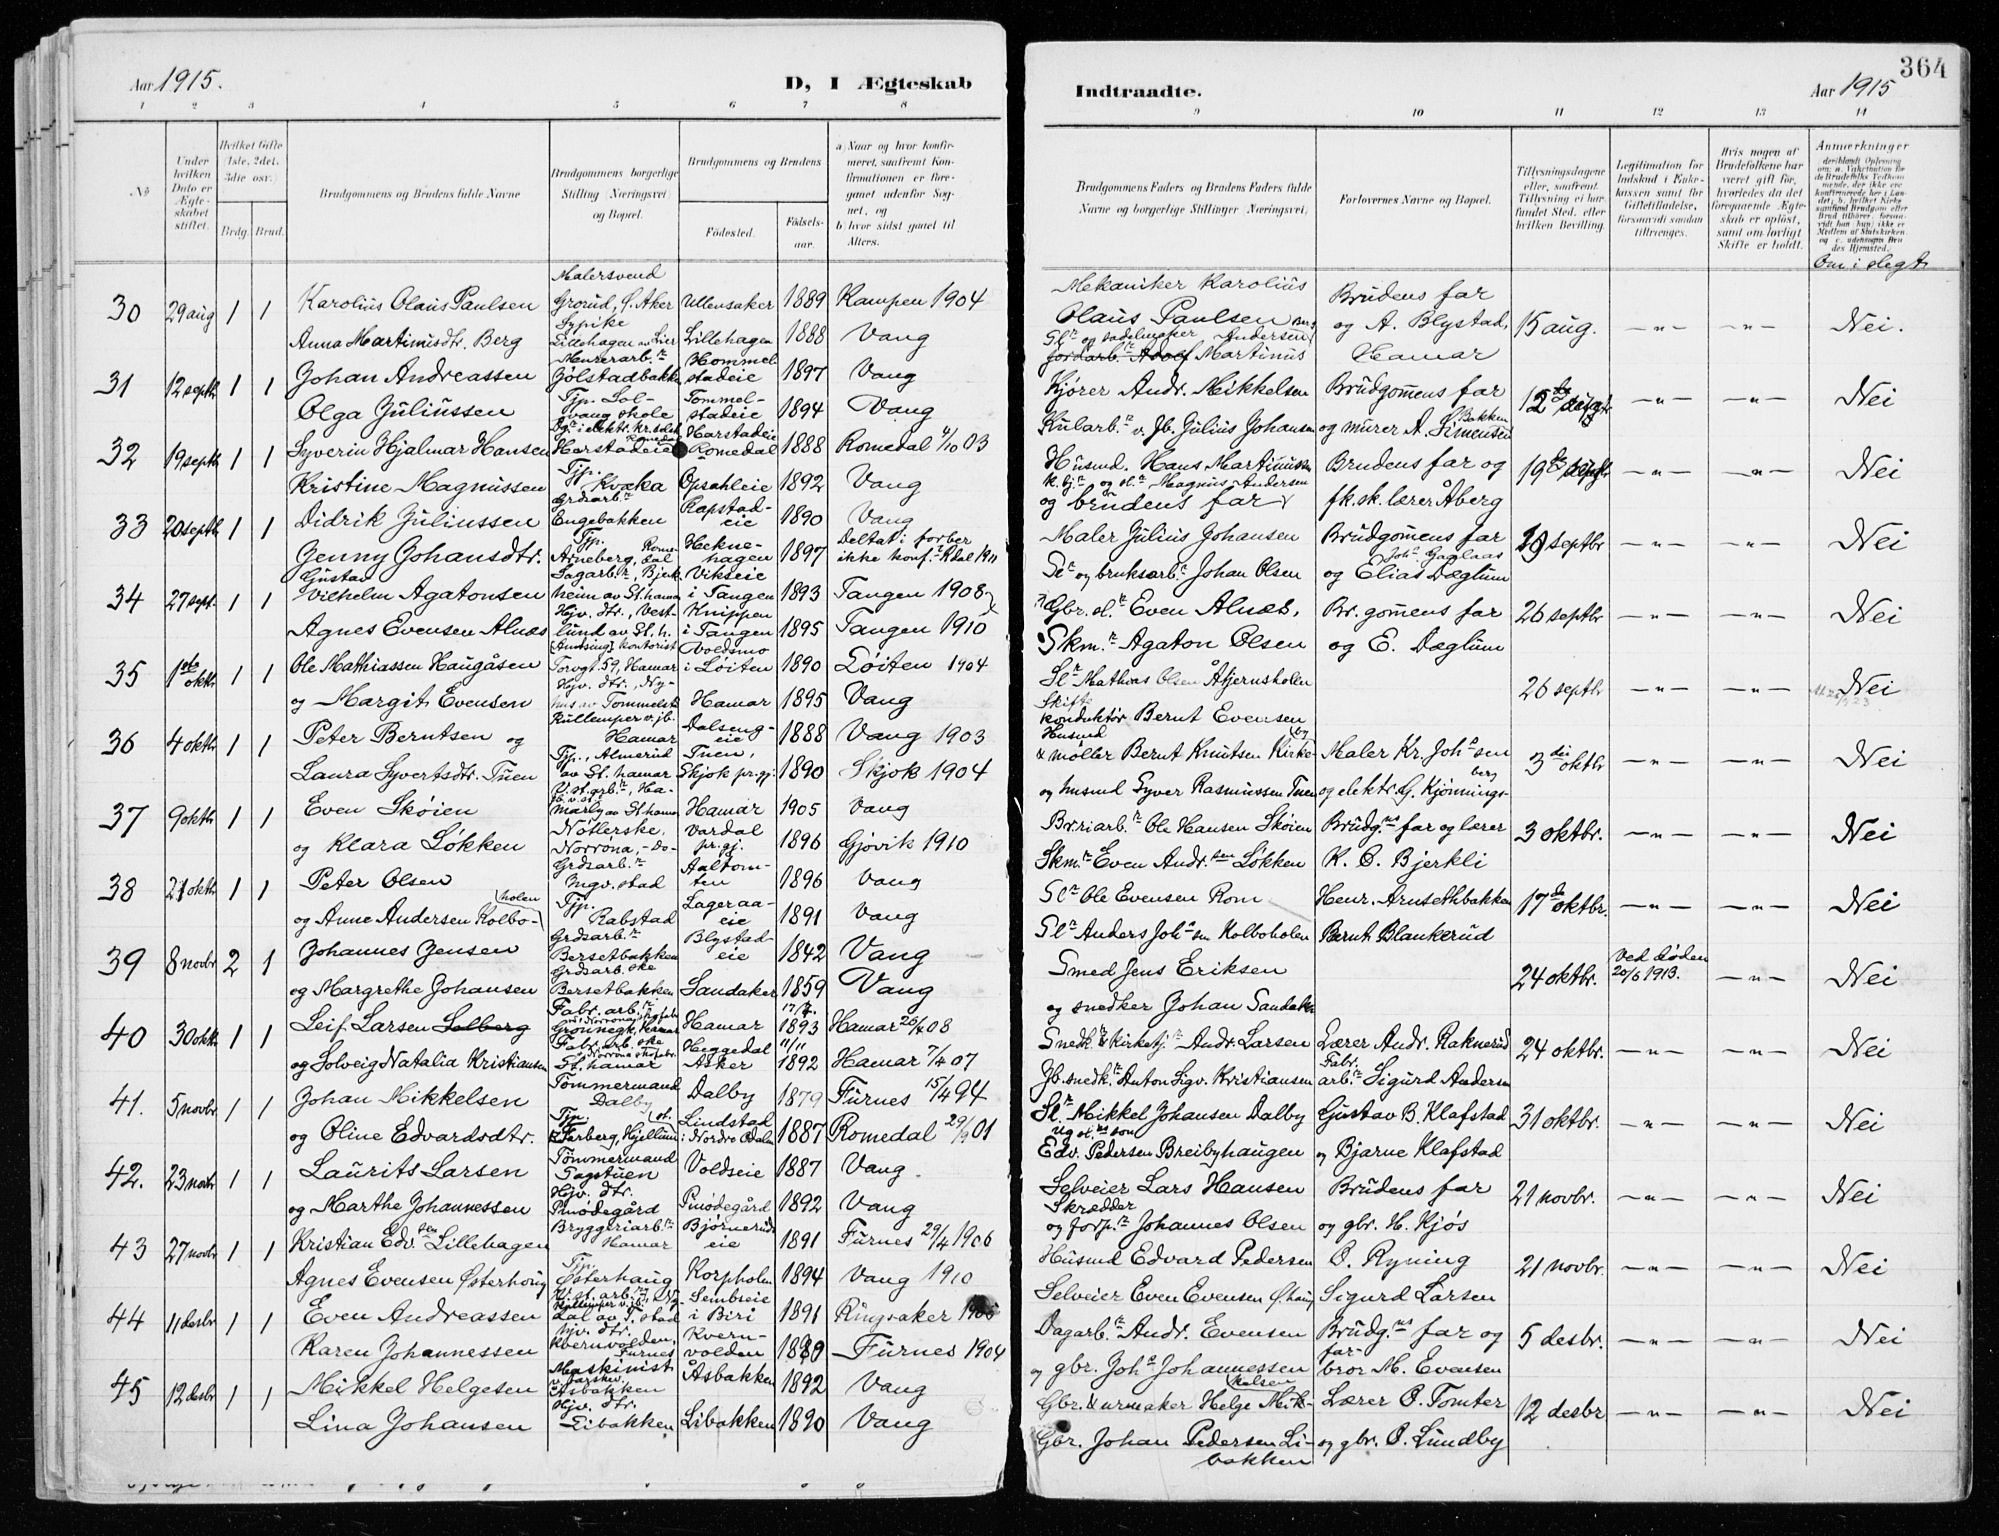 Aar 1915.
D, I Ægteskab
1 2 3 4 5 6 7 8
No
Under hvilken Dato er Ægteskabet stiftet.
Hvilket Gifte (1ste, 2det, 3die osv.)
Brdg. Brud.
Brudgommens og Brudens fulde Navne
Brudgommens borgerlige Stilling (Næringsvei) og Bopæl.
Brudgommens og Brudens
Fødested.
Fødselsaar.
a) Naar og hvor konfirmeret, saafremt Konfirmationen er foregaaet udenfor Sognet, og
b) hvor sidst gaaet til Alters.
30 29 aug 1 1 Karolius Olaus Paulsen Malersvend Grorud, Ø. Aker Ullensaker 1889 Kampen 1904
Anna Martinusdtr. Berg Sypike Lillehagen av Lier Lillehagen 1888 Vang
31 12 septb 1 1 Johan Andreassen Murerarb. Gölstadbakken Hommelstadeie 1897 Vang
Olga Juliussen Tjp. Solvang skole Tommelstadeie 1894 Vang
32 19 septb 1 1 Syverin Hjalmar Hansen Harstadeie Romedal Harstadeie Romedal 1888 Romedal 4/10 03
Kristine Magnussen Tjp. Kvæka Opsahleie 1892 Vang
33 20 septb 1 1 Didrik Juliussen Grdsarb. Engebakken Rapstadeie 1890 Vang
Jenny Johansdtr. Tjp. Arneberg, Romedal Heknehagen 1897 Deltat i forber ikke konf. Rdal 1911
34 27 sept. 1 1 Gustav Vilhelm Agatonsen Sagarb., Bjerkheim av St. hamar Vikseie i Tangen 1893 Tangen 1908
Agnes Evensen Alnæs Hjv. dtr., Vestlund av St. h. Knippen i Tangen 1895 Tangen 1910
35 1ste oktbr 1 1 Ole Mathiassen Haugåsen Amtsing. kontorist Torvgt. 59, Hamar Voldsmo i Löiten 1890 Löiten 1904
og Margit Evensen Hjv. dtr., Nyhus av Tommelst. Hamar 1895 Vang
36 4 oktb 1 1 Peter Berntsen og Kullemper v. jb. Hamar Dalsengeie 1888 Vang 1903
Laura Syvertsdtr. Tuen Tjp., Almerud av St. hamar Tuen, Skjok pr.gj. 1890 Skjok 1904
37 9 oktb 1 1 Even Skøien Hamar 1905 Vang
og Klara Løkken Norrøna, -do- Vardal pr.gj. 1896 Gjøvik 1910
38 21 oktb 1 1 Peter Olsen Grdsarb. Ingv. stad Aaltomten 1896 Vang
og Anne Andersen Kolboholen Tjp. Rabstad Lageraaeie 1891 Vang
39 8 novbr 2 1 Johannes Jensen Grdsarb. Bersetbakken Blystadeie 1842 Vang
og Margrethe Johansen Grdsarb.ske Bersetbakken Sandaker 1859 Vang
40 30 oktb 1 1 Leif Larsen Solberg Fabr. arb. Grönnegt. Hamar Hamar 17/7 1893 Hamar 26/4 08
og Solveig Natalia Kristiansen Fabr. arb.ske St. hamar Heggedal Asker 11/11 1892 Hamar 7/4 07
41. 5 novbr 1 1 Johan Mikkelsen Tømmermand Dalby Dalby 1879 Furnes 15/4 94
og Oline Edvardsdtr. Tjp. Farberg, Kjellum st. Lindstad i Nordre Odalen 1887 Romedal 29/9 01
42. 23 novbr 1 1 Laurits Larsen Tømmermand Tagstuen Voldseie 1887 Vang.
og Marthe Johannessen Hjv. dtr. Pmödegård Pmödegård 1892 Vang
43 27 novbr 1 1 Kristian Edv.sen Lillehagen Bryggeriarb. Hamar Bjørnerudeie 1891 Furnes 29/4 1906
Agnes Evensen Østerhaug Tjp. Østerhaug Korpholm 1894 Vang 1910
44 11 desbr 1 1 Even Andreassen Kullemper v. jb. Sembseie i Biri 1891 Ringsaker 1906
Karen Johannessen Hjv. dtr. Kvernvolden, Furnes Kvernvolden 1889 Furnes 1904
45 12 desbr 1 1 Mikkel Helgesen Maskinist Åsbakken Åsbakken 1892 Vang
Lina Johansen Hjv. dtr. Libakken Libakken 1890 Vang
364
Indtraadte.
Aar 1915
9 10 11 12 13 14
Brudgommens Faders og Brudens Faders fulde Navne og borgerlige Stillinger (Næringsvei)
Forlovernes Navne og Bopæl.
Tillysningsdagene eller, saafremt Tillysning ei har fundet Sted, efter hvilken Bevilling.
Legitimation for Indskud i Enkekassen samt for Giftetilladelse, forsaavidt saadan tiltrænges.
Hvis nogen af Brudefolkene har været gift før, hvorledes da det foregaaende Ægteskab er opløst, samt om lovligt Skifte er holdt.
Anmerkninger
deriblandt Oplysning om: a. Vakcination for de Brudefolks Vedkommende, der ikke ere konfirmerede her i Landet; b. hvilket Kirkesamfund Brudgom eller Brud tilhører, forsaavidt han (hun) ikke er Medlem af Statskirken, og c. udensogns Brudes Hjemsted.
Om i slegt
Mekaniker Karolius Olaus Paulsen Brudens far og A. Blystad, Hamar 15 aug. — " — — " — Nei.
Sl. og sadelmaker Andersen Jordarb. Adolf Martinus
Kjører Andr. Mikkelsen Brudgomens far 12 septbr — " — — " — Nei
Kularb. v. Jb. Julius Johansen og murer A. Simensen Bakken
Husmd. Hans Martinussen Brudens far og 19 septbr — " — — " — Nei
Magnus Andersen og brudens far fk. sk. lærer Åberg
Maler Julius Johansen Brudgomens far 19 septbr — " — — " — Nei
Sl. og bruksarb. Johan Olsen og Elias Dæglum
Gbr. sl. Even Alnæs, Br. gomens far 26 septbr — " — — " — Nei
Skm. Agaton Olsen og E. Dæglum
Sl. Mathias Olsen Åkjernsholen 26 septbr — " — — " — Nei
Skiftekonduktör Bernt Evensen
Husmd & møller Bernt Knutsen Kirkeby Maler Kr. Joh.sen 3die oktbr — " — — " — Nei
og husmd Syver Rasmussen Tuen og elektr. G. Kjönningsberg
Br.riarb. Ole Hansen Skøien Brudg.ns far og lærer 3 oktbr. — " — — " — Nei
Skm. Even Andr.sen Løkken K. O. Bjerkli
Sl. Ole Evensen Rom Henr. Arnsethbakken 17de oktbr. — " — — " — Nei
Sl. Anders Joh.sen Kolboholen Bernt Blankerud
Smed Jens Eriksen 24 oktbr. Ved døden 20/6 1913. — " — Nei
og snedker Johan Sandaker
Snedk. & Kirketj. Andr. Larsen Lærer Andr. Raknerud 24 oktbr. — " — — " — Nei
Jb. snedk. Anton Sigv. Kristiansen Fabr. arb. Sigurd Andersen
Sl. Mikkel Johansen Dalby Gustav B. Klafstad 31 oktbr. — " — — " — Nei
Edv. Pedersen Breibyhaugen og Bjarne Klafstad
Selveier Lars Hansen Brudens far 21 novbr. — " — — " — Nei
Skrædder og forp. Johannes Olsen og gbr. H. Kjøs
Husmd Edvard Pedersen O. Ryning 21 novbr. — " — — " — Nei
Selveier Even Evensen Ø.haug Sigurd Larsen
Dagarb. Andr. Evensen Brudg.ns far og 5 desbr. — " — — " — Nei
og gbr. Joh. Johannessen farbror M. Evensen
Gbr. & urmaker Helge Mikkelsen Lærer O. Tomter 12 desbr — " — — " — Nei
Gbr. Johan Pedersen Libakken og gbr. O. Lundby